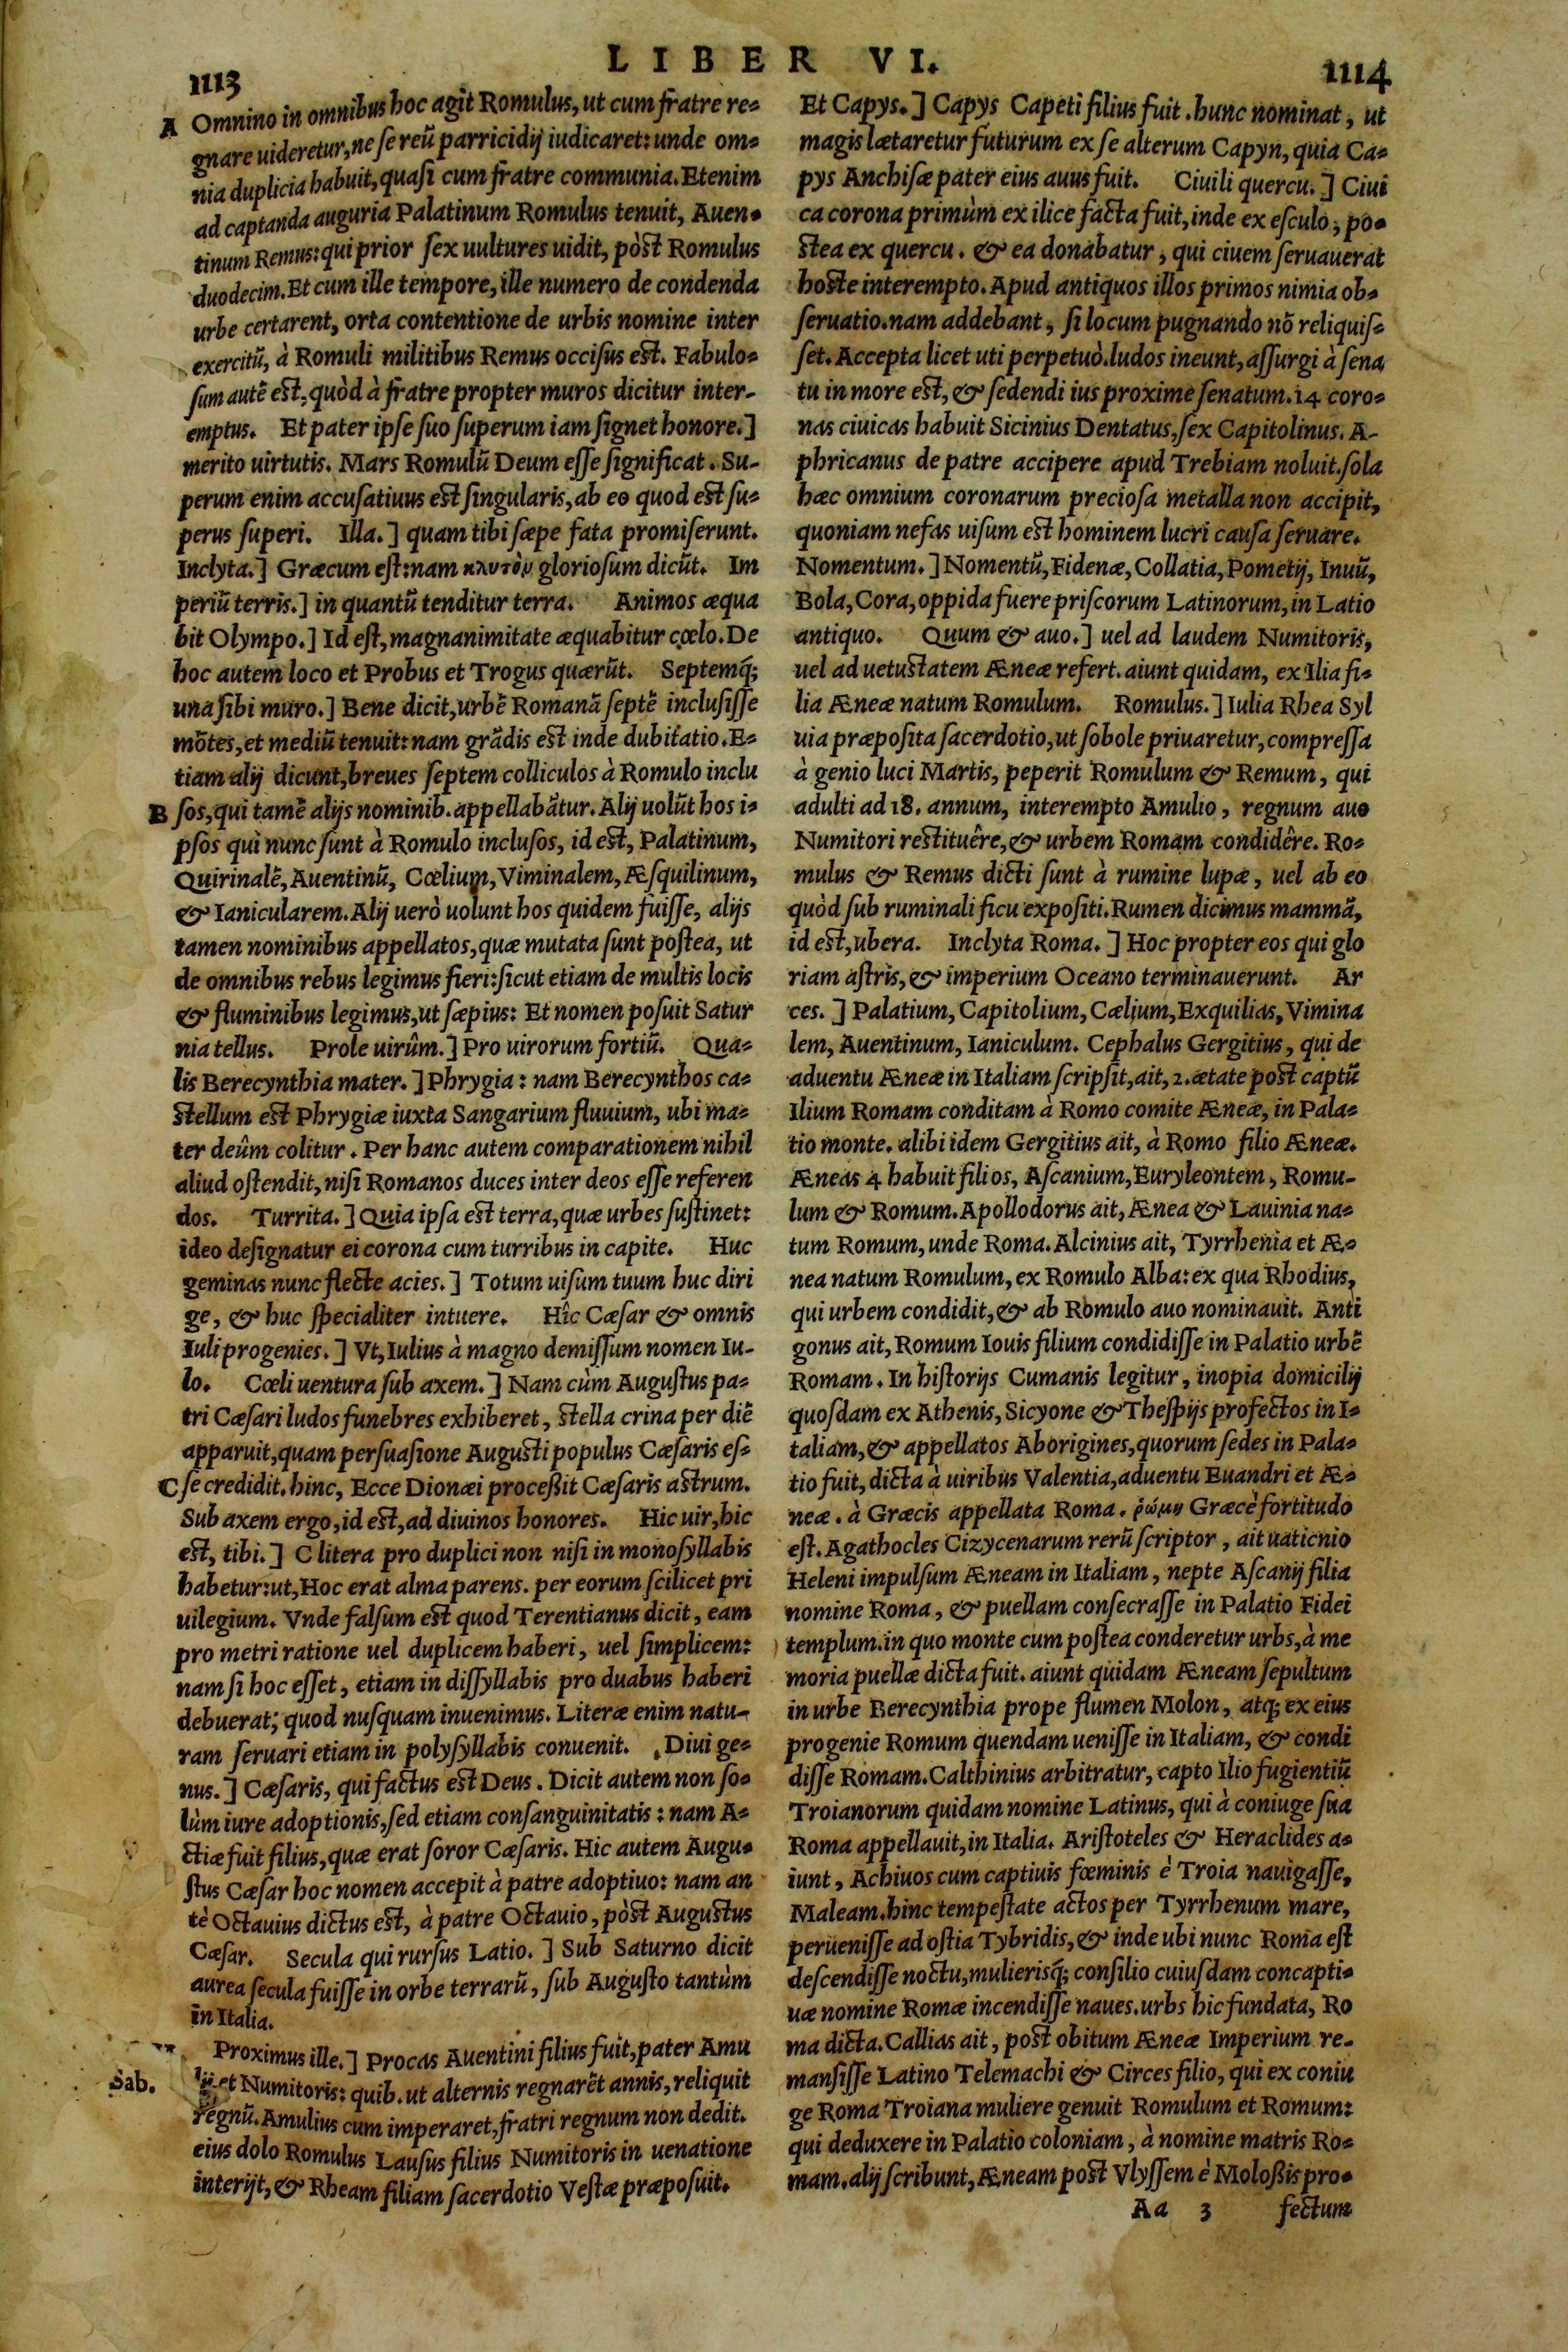 LIBER VI.
1113
A Omnino in omnibus hoc agit Romulus, ut cum fratre re-
gnare uideretur, ne se reũ parricidij iudicaret: unde om-
nia duplicia habuit, quasi cum fratre communia. Etenim
ad captanda auguria Palatinum Romulus tenuit, Auen-
tinum Remus: qui prior sex uultures uidit, pòst Romulus
duodecim. Et cum ille tempore, ille numero de condenda
urbe certarent, orta contentione de urbis nomine inter
exercitũ, à Romuli militibus Remus occisus est. Fabulo-
sum autẽ est, quòd à fratre propter muros dicitur inter-
emptus. Et pater ipse suo superum iam signet honore.]
merito uirtutis. Mars Romulũ Deum esse significat. Su-
perum enim accusatiuus est singularis, ab eo quod est su-
perus superi. Illa.] quam tibi sæpe fata promiserunt.
Inclyta.] Græcum est: nam κλυτὸν gloriosum dicũt. Im
periũ terris.] in quantũ tenditur terra. Animos æqua
bit Olympo.] Id est, magnanimitate æquabitur cœlo. De
hoc autem loco et Probus et Trogus quærũt. Septemq́;
una sibi muro.] Bene dicit, urbẽ Romanã septẽ inclusisse
mõtes, et mediũ tenuit: nam grãdis est inde dubitatio. E-
tiam alij dicunt, breues septem colliculos à Romulo inclu
B sos, qui tamẽ alijs nominib. appellabãtur. Alij uolũt hos i-
psos qui nunc sunt à Romulo inclusos, id est, Palatinum,
Quirinalẽ, Auentinũ, Cœlium, Viminalem, Æsquilinum,
& Ianicularem. Alij uerò uolunt hos quidem fuisse, alijs
tamen nominibus appellatos, quæ mutata sunt postea, ut
de omnibus rebus legimus fieri: sicut etiam de multis locis
& fluminibus legimus, ut sæpius: Et nomen posuit Satur
nia tellus. Prole uirûm.] Pro uirorum fortiũ. Qua-
lis Berecynthia mater.] Phrygia: nam Berecynthos ca-
stellum est Phrygiæ iuxta Sangarium fluuium, ubi ma-
ter deûm colitur. Per hanc autem comparationem nihil
aliud ostendit, nisi Romanos duces inter deos esse referen
dos. Turrita.] Quia ipsa est terra, quæ urbes sustinet:
ideo designatur ei corona cum turribus in capite. Huc
geminas nunc flecte acies.] Totum uisum tuum huc diri
ge, & huc specialiter intuere. Hîc Cæsar & omnis
Iuli progenies.] Vt, Iulius à magno demissum nomen Iu-
lo. Cœli uentura sub axem.] Nam cùm Augustus pa-
tri Cæsari ludos funebres exhiberet, stella crina per diẽ
apparuit, quam persuasione Augusti populus Cæsaris es-
C se credidit. hinc, Ecce Dionæi proceßit Cæsaris astrum.
Sub axem ergo, id est, ad diuinos honores. Hic uir, hic
est, tibi.] C litera pro duplici non nisi in monosyllabis
habetur: ut, Hoc erat alma parens. per eorum scilicet pri
uilegium. Vnde falsum est quod Terentianus dicit, eam
pro metri ratione uel duplicem haberi, uel simplicem:
nam si hoc esset, etiam in dissyllabis pro duabus haberi
debuerat; quod nusquam inuenimus. Literæ enim natu-
ram seruari etiam in polysyllabis conuenit. Diui ge-
nus.] Cæsaris, qui factus est Deus. Dicit autem non so-
lùm iure adoptionis, sed etiam consanguinitatis: nam A-
ctiæ fuit filius, quæ erat soror Cæsaris. Hic autem Augu-
stus Cæsar hoc nomen accepit à patre adoptiuo: nam an
tè Octauius dictus est, à patre Octauio, pòst Augustus
Cæsar. Secula qui rursus Latio.] Sub Saturno dicit
aurea secula fuisse in orbe terrarũ, sub Augusto tantùm
in Italia.
Proximus ille.] Procas Auentini filius fuit, pater Amu
Sab. lij et Numitoris: quib. ut alternis regnarẽt annis, reliquit
regnũ. Amulius cum imperaret, fratri regnum non dedit.
eius dolo Romulus Lausus filius Numitoris in uenatione
interijt, & Rheam filiam sacerdotio Vestæ præposuit.
1114
Et Capys.] Capys Capeti filius fuit. hunc nominat, ut
magis lætaretur futurum ex se alterum Capyn, quia Ca-
pys Anchisæ pater eius auus fuit. Ciuili quercu.] Ciui
ca corona primùm ex ilice facta fuit, inde ex esculo, po-
stea ex quercu. & ea donabatur, qui ciuem seruauerat
hoste interempto. Apud antiquos illos primos nimia ob-
seruatio. nam addebant, si locum pugnando nõ reliquis-
set. Accepta licet uti perpetuò. ludos ineunt, assurgi à sena
tu in more est, & sedendi ius proxime senatum. 14 coro-
nas ciuicas habuit Sicinius Dentatus, sex Capitolinus. A-
phricanus de patre accipere apud Trebiam noluit. sola
hæc omnium coronarum preciosa metalla non accipit,
quoniam nefas uisum est hominem lucri causa seruare.
Nomentum.] Nomentũ, Fidenæ, Collatia, Pometij, Inuũ,
Bola, Cora, oppida fuere priscorum Latinorum, in Latio
antiquo. Quum & auo.] uel ad laudem Numitoris,
uel ad uetustatem Æneæ refert. aiunt quidam, ex Ilia fi-
lia Æneæ natum Romulum. Romulus.] Iulia Rhea Syl
uia præposita sacerdotio, ut sobole priuaretur, compressa
à genio luci Martis, peperit Romulum & Remum, qui
adulti ad 18. annum, interempto Amulio, regnum auo
Numitori restituêre, & urbem Romam condidêre. Ro-
mulus & Remus dicti sunt à rumine lupæ, uel ab eo
quòd sub ruminali ficu expositi. Rumen dicimus mammã,
id est, ubera. Inclyta Roma.] Hoc propter eos qui glo
riam astris, & imperium Oceano terminauerunt. Ar
ces.] Palatium, Capitolium, Cælium, Exquilias, Vimina
lem, Auentinum, Ianiculum. Cephalus Gergitius, qui de
aduentu Æneæ in Italiam scripsit, ait, 2. ætate post captũ
Ilium Romam conditam à Romo comite Æneæ, in Pala-
tio monte. alibi idem Gergitius ait, à Romo filio Æneæ.
Æneas 4 habuit filios, Ascanium, Euryleontem, Romu-
lum & Romum. Apollodorus ait, Ænea & Lauinia na-
tum Romum, unde Roma. Alcinius ait, Tyrrhenia et Æ-
nea natum Romulum, ex Romulo Alba: ex qua Rhodius,
qui urbem condidit, & ab Romulo auo nominauit. Anti
gonus ait, Romum Iouis filium condidisse in Palatio urbẽ
Romam. In historijs Cumanis legitur, inopia domicilij
quosdam ex Athenis, Sicyone & Thespijs profectos in I-
taliam, & appellatos Aborigines, quorum sedes in Pala-
tio fuit, dicta à uiribus Valentia, aduentu Euandri et Æ-
neæ. à Græcis appellata Roma. ῥώμη Græcè fortitudo
est. Agathocles Cizycenarum rerũ scriptor, ait uaticnio
Heleni impulsum Æneam in Italiam, nepte Ascanij filia
nomine Roma, & puellam consecrasse in Palatio Fidei
templum. in quo monte cum postea conderetur urbs, à me
moria puellæ dicta fuit. aiunt quidam Æneam sepultum
in urbe Berecynthia prope flumen Molon, atq; ex eius
progenie Romum quendam uenisse in Italiam, & condi
disse Romam. Calthinius arbitratur, capto Ilio fugientiũ
Troianorum quidam nomine Latinus, qui à coniuge sua
Roma appellauit, in Italia. Aristoteles & Heraclides a-
iunt, Achiuos cum captiuis fœminis è Troia nauigasse,
Maleam. hinc tempestate actos per Tyrrhenum mare,
peruenisse ad ostia Tybridis, & inde ubi nunc Roma est
descendisse noctu, mulierisq́; consilio cuiusdam concapti-
uæ nomine Romæ incendisse naues. urbs hic fundata, Ro
ma dicta. Callias ait, post obitum Æneæ Imperium re-
mansisse Latino Telemachi & Circes filio, qui ex coniu
ge Roma Troiana muliere genuit Romulum et Romum:
qui deduxere in Palatio coloniam, à nomine matris Ro-
mam. alij scribunt, Æneam post Vlyssem è Moloßis pro-
Aa 3 fectum